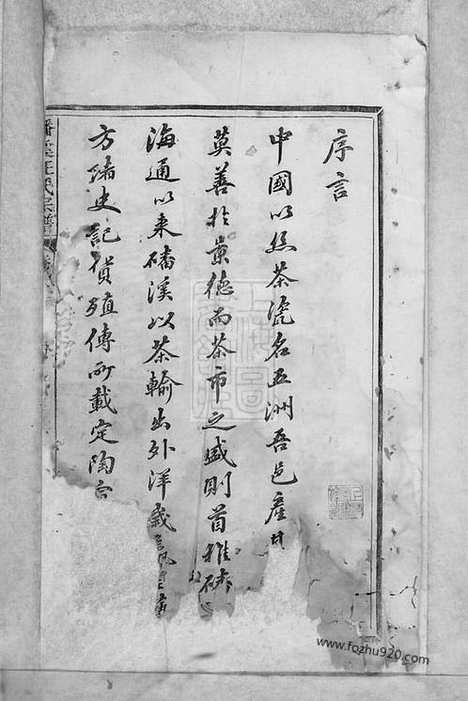 序言
中國以絲茶瓷名五洲吾邑產
莫善於景德而茶市之盛則首推磻
海通以來磻溪以茶輸出外洋歲
方諸史記貨殖傳所載定陶
磻溪汪氏宗譜
www.fozhu920.com